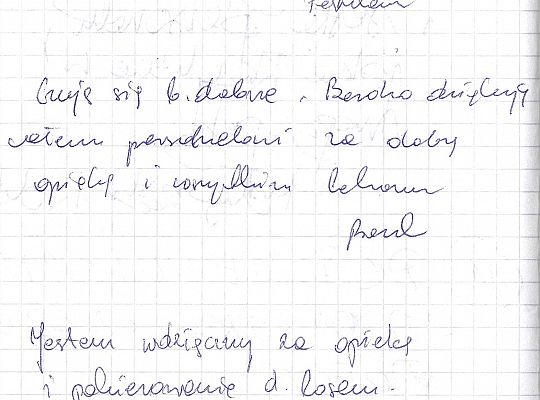 Czuję się b. dobrze. Bardzo dziękuję
całemu personelowi za dobrą
opiekę i wszystkim lekarzom
Jestem wdzięczny za opiekę
i pokierowanie d. losem.